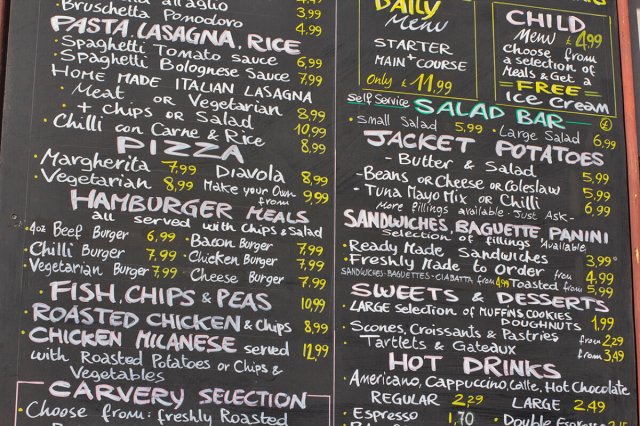 Bruschetta Pomodoro 3,99
4,99
PASTA, LASAGNA, RICE
Spaghetti Tomato sauce 6,99
Spaghetti Bolognese Sauce 7,99
HOME MADE ITALIAN LASAGNA
Meat or Vegetarian 8,99
+ Chips or Salad 10,99
Chilli con Carne & Rice 8,99
PIZZA
Margherita 7,99 Diavola 8,99
Vegetarian 8,99 Make your own from 9,99
HAMBURGER MEALS
all served with chips & Salad
4oz Beef Burger 6,99 Bacon Burger 7,99
Chilli Burger 7,99 Chicken Burger 7,99
Vegetarian Burger 7,99 Cheese Burger 7,99
FISH, CHIPS & PEAS 10,99
ROASTED CHICKEN & Chips 8,99
CHICKEN MILANESE served 12,99
with Roasted Potatoes or Chips &
Vegetables
CARVERY SELECTION
Choose from: freshly Roasted
DAILY
Menu
STARTER
+
MAIN COURSE
Only £ 11,99
CHILD
Menu £ 4,99
choose from
a selection of
Meals & Get a
FREE
Ice Cream
Self Service SALAD BAR
Small Salad 5,99 Large Salad 6,99
JACKET POTATOES
- Butter & Salad 5,99
- Beans or Cheese or Coleslaw 5,99
- Tuna Mayo Mix or Chilli 6,99
More fillings available - Just Ask -
SANDWICHES, BAGUETTE, PANINI
Selection of fillings Available
Ready Made Sandwiches 3,99
Freshly Made to Order from 4,99
SANDWICHES - BAGUETTES - CIABATTA from 4,99 Toasted from 5,99
SWEETS & DESSERTS
LARGE selection of MUFFINS, COOKIES
DOUGHNUTS 1,99
Scones, Croissants & Pastries from 2,29
Tartlets & Gateaux from 3,49
HOT DRINKS
Americano, Cappuccino, Latte, Hot Chocolate
REGULAR 2,29 LARGE 2,49
Espresso 1,70 Double Espresso